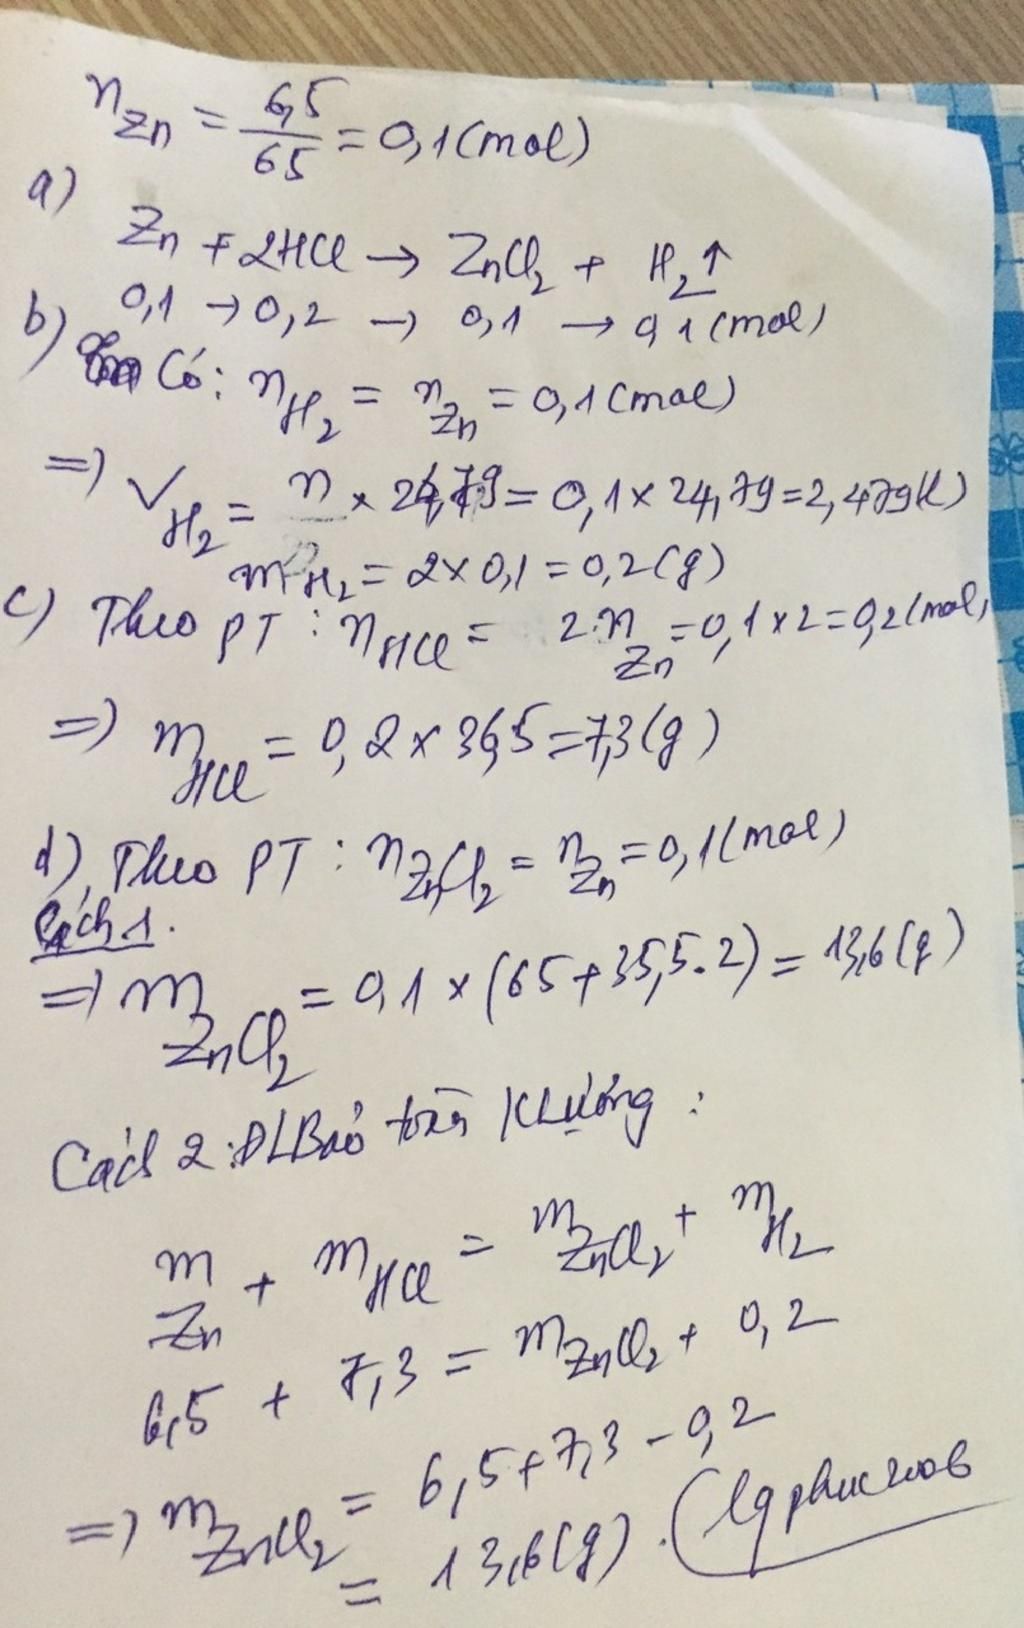 n_Zn = 6,5/65 = 0,1 (mol)
a)
Zn + 2HCl → ZnCl₂ + H₂↑
0,1 → 0,2 → 0,1 → 0,1 (mol)
b) Có: n_H₂ = n_Zn = 0,1 (mol)
=) V_H₂ = n × 24,79 = 0,1 × 24,79 = 2,479 (l)
m_H₂ = 2 × 0,1 = 0,2 (g)
c) Theo PT : n_HCl = 2.n_Zn = 0,1 × 2 = 0,2 (mol)
=) m_HCl = 0,2 × 36,5 = 7,3 (g)
d) Theo PT : n_ZnCl₂ = n_Zn = 0,1 (mol)
Cách 1.
=) m_ZnCl₂ = 0,1 × (65 + 35,5.2) = 13,6 (g)
Cách 2 : ĐL Bảo toàn KLượng :
m_Zn + m_HCl = m_ZnCl₂ + m_H₂
6,5 + 7,3 = m_ZnCl₂ + 0,2
=) m_ZnCl₂ = 6,5 + 7,3 - 0,2
= 13,6 (g).